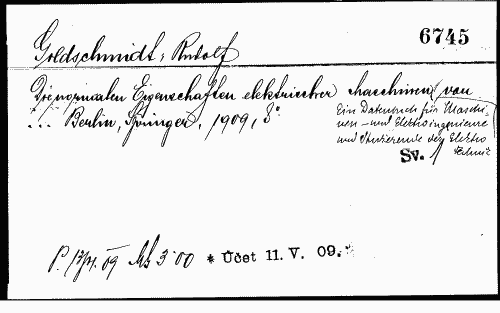 6745
Goldschmidt, Rudolf
Die normalen Eigenschaften elektrischer Maschinen, von
... Berlin, Springer, 1909, 8°
Ein Datenbuch für Maschi-
nen- und Elektroingenieure
und Studierende der Elektro
technik
Sv. 1
P. 09 Mk 3·00 * Účet 11. V. 09.